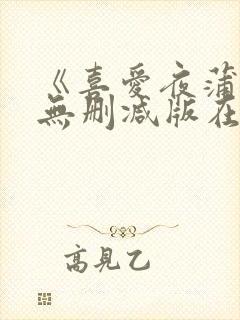 《喜愛夜蒲
無删减版在
高見乙